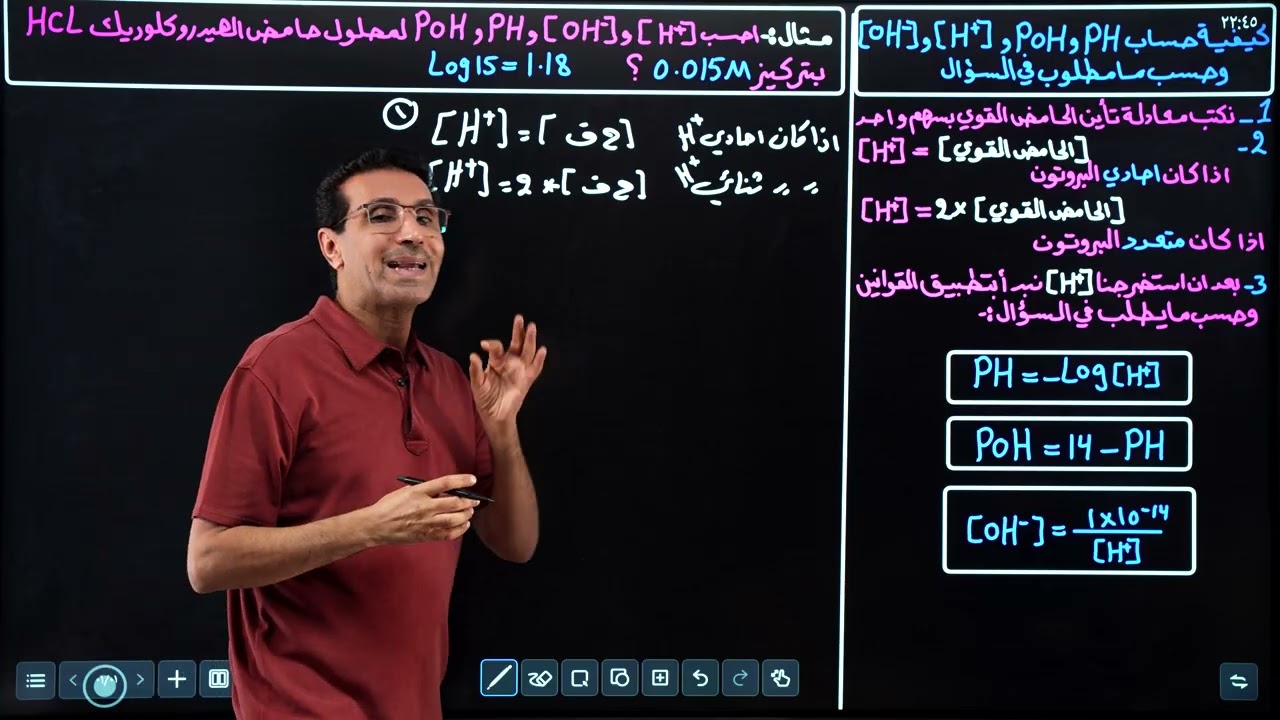 ٢٢:٤٥
كيفية حساب PH و POH و [H⁺] و [OH⁻]
وحسب ما مطلوب في السؤال
1- نكتب معادلة تأين الحامض القوي بسهم واحد
2- [H⁺] = [الحامض القوي]
اذا كان احادي البروتون
[H⁺] = 2× [الحامض القوي]
اذا كان متعدد البروتون
3- بعد ان استخرجنا [H⁺] نبدأ بتطبيق القوانين
وحسب ما يطلب في السؤال :-
PH = -Log [H⁺]
POH = 14 - PH
[OH⁻] = 1×10⁻¹⁴ / [H⁺]
مثال:- احسب [H⁺] و [OH⁻] و PH و POH لمحلول حامض الهيدروكلوريك HCL
بتركيز 0.015M ؟ Log 15 = 1.18
[H⁺] = [ح ق] اذا كان احادي H⁺
[H⁺] = 2 × [ح ق] = = ثنائي H⁺